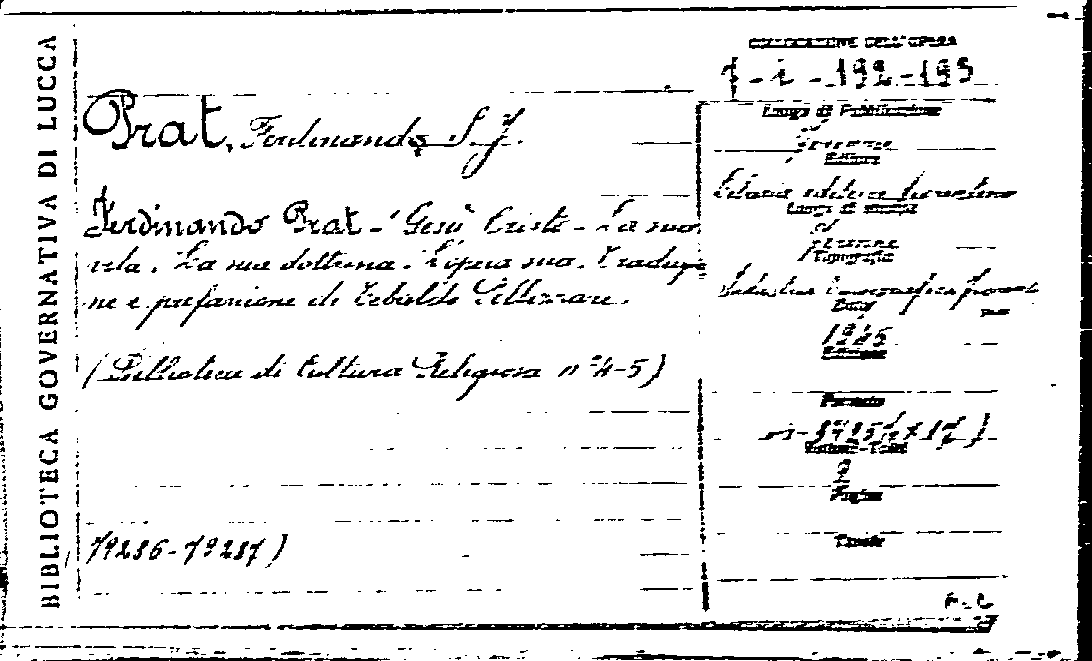 BIBLIOTECA GOVERNATIVA DI LUCCA
COLLOCAZIONE DELL'OPERA
Prat, Ferdinando S. J.
Ferdinando Prat - Gesù Cristo - La sua
vita. La sua dottrina. L'opera sua. Traduzio
ne e prefazione di Tebaldo Pellizzari.
(Biblioteca di Cultura Religiosa n° 4-5)
Luogo di Pubblicazione
Firenze
Editore
Libreria editrice fiorentina
Luogo di stampa
Firenze
Tipografia
Industria Tipografica fiorent
Data
1945
Edizione
Formato
Volume-Tomo
2
Pagine
Tavole